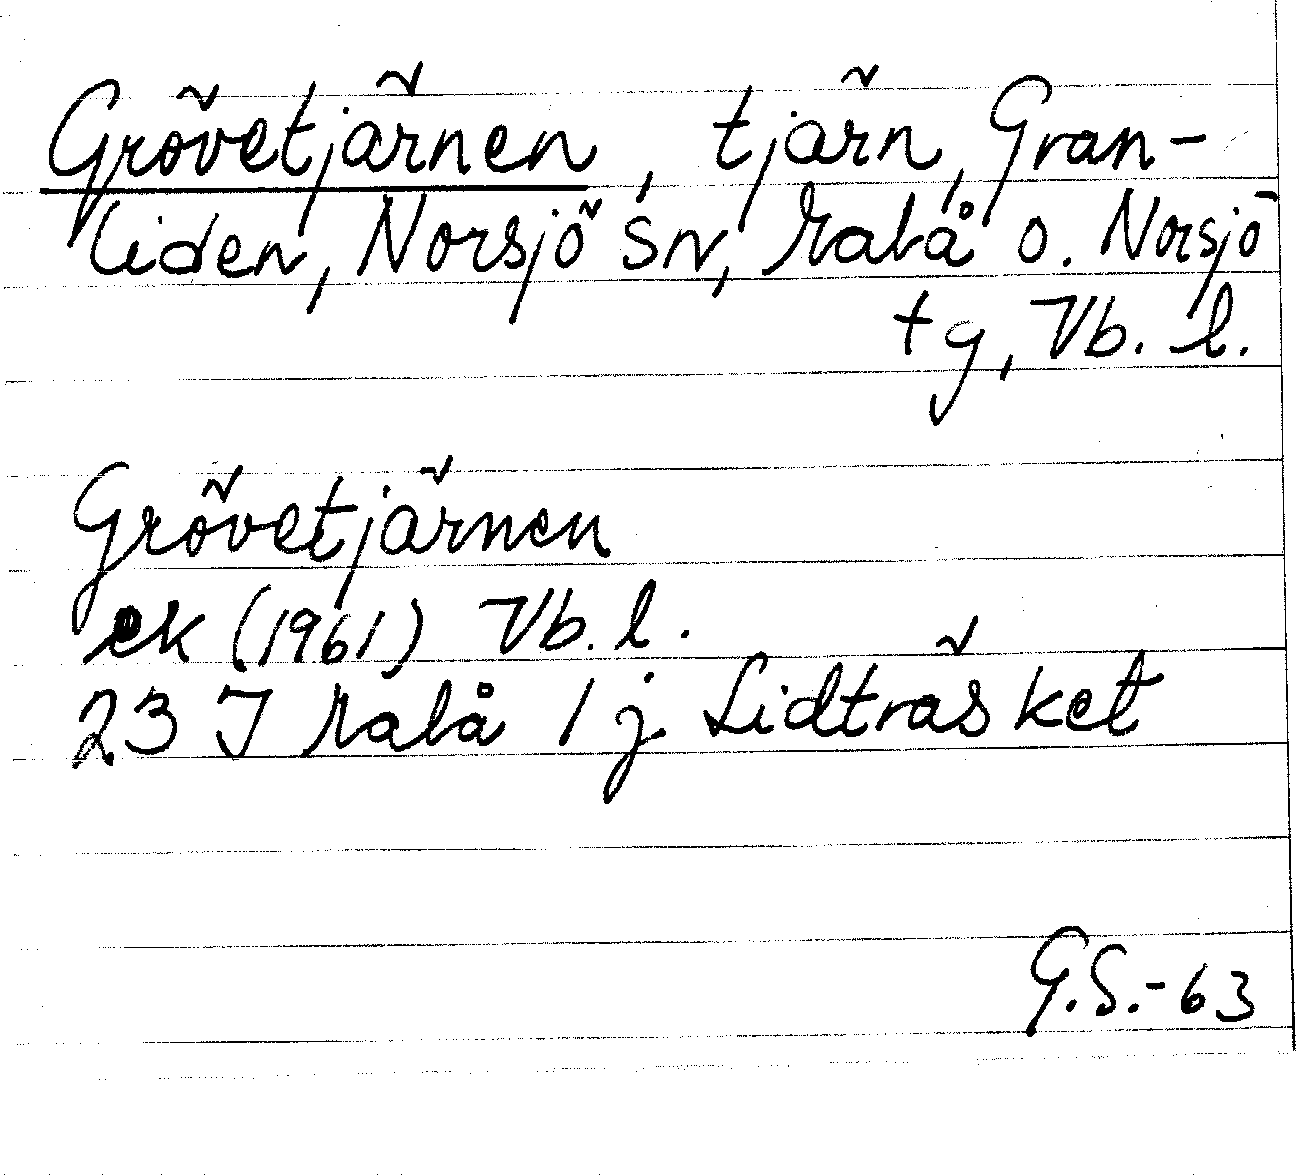 Grövetjärnen, tjärn, Gran-
liden, Norsjö sn, Malå o. Norsjö
tg, Vb. l.
Grövetjärnen
ek (1961) Vb. l.
23 J Malå 1 j. Lidträsket
G.S.-63